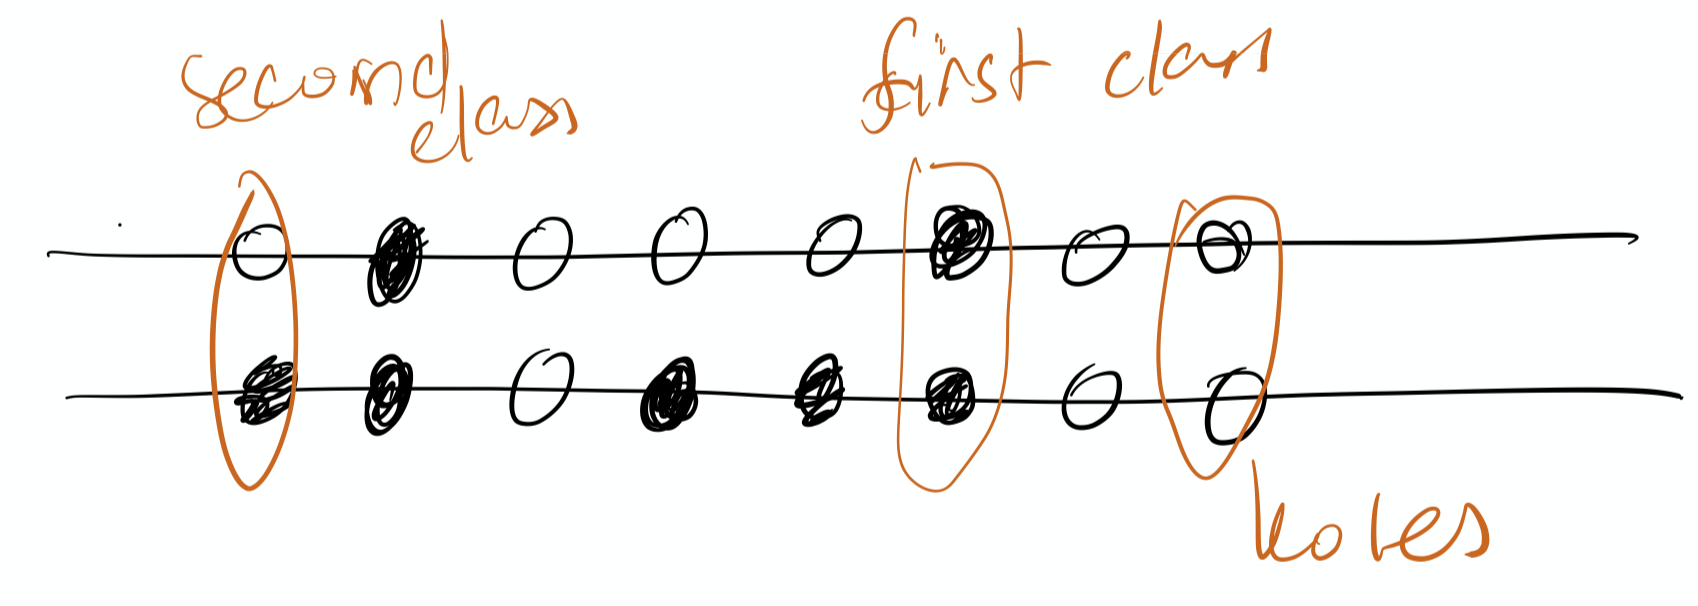 second class
first class
holes